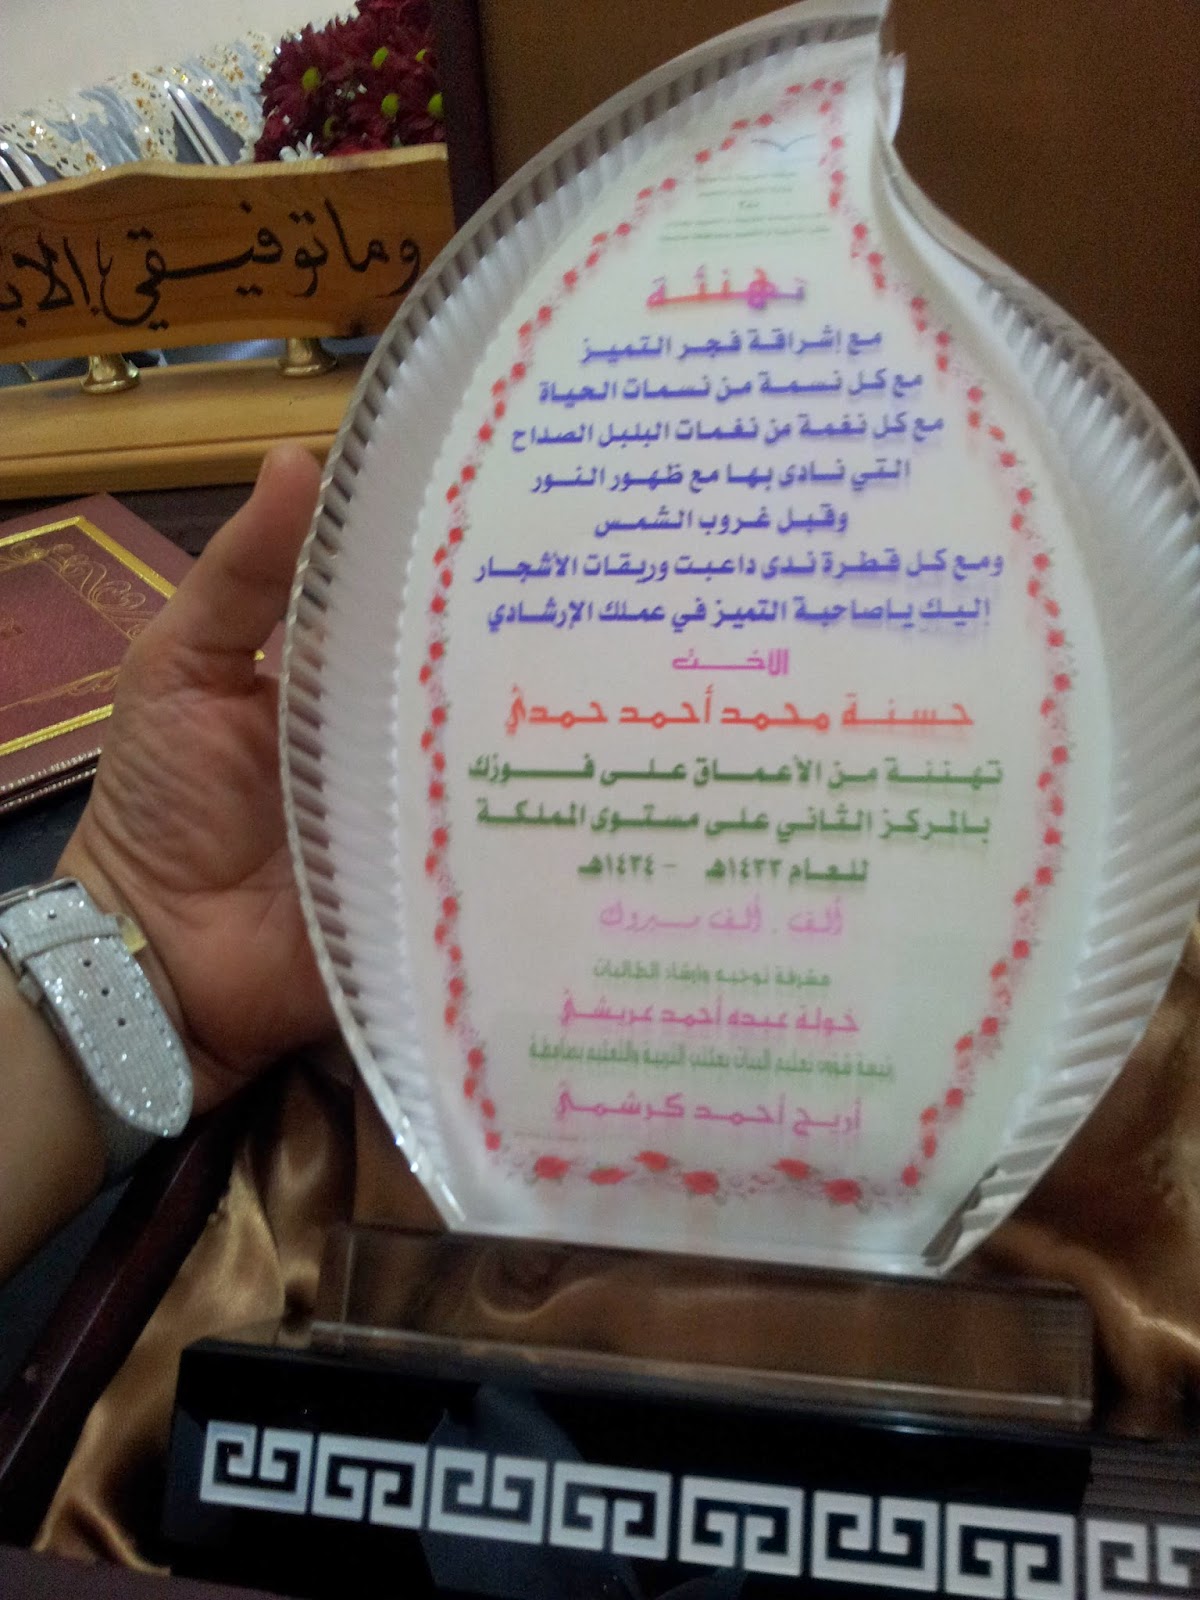 وما توفيقي إلا با
تهنئة
مع إشراقة فجر التميز
مع كل نسمة من نسمات الحياة
مع كل نغمة من نغمات البلبل الصداح
التي نادى بها مع ظهور النور
وقبل غروب الشمس
ومع كل قطرة ندى داعبت وريقات الأشجار
إليك ياصاحبة التميز في عملك الإرشادي
الاخت
حسنة محمد أحمد حمدي
تهنئة من الأعماق على فوزك
بالمركز الثاني على مستوى المملكة
للعام ١٤٣٣هـ - ١٤٣٤هـ
ألف . ألف مبروك
مشرفة توجيه وارشاد الطالبات
خولة عبده أحمد عريشي
شؤون تعليم البنات بمكتب التربية والتعليم
أريج أحمد كرشمي